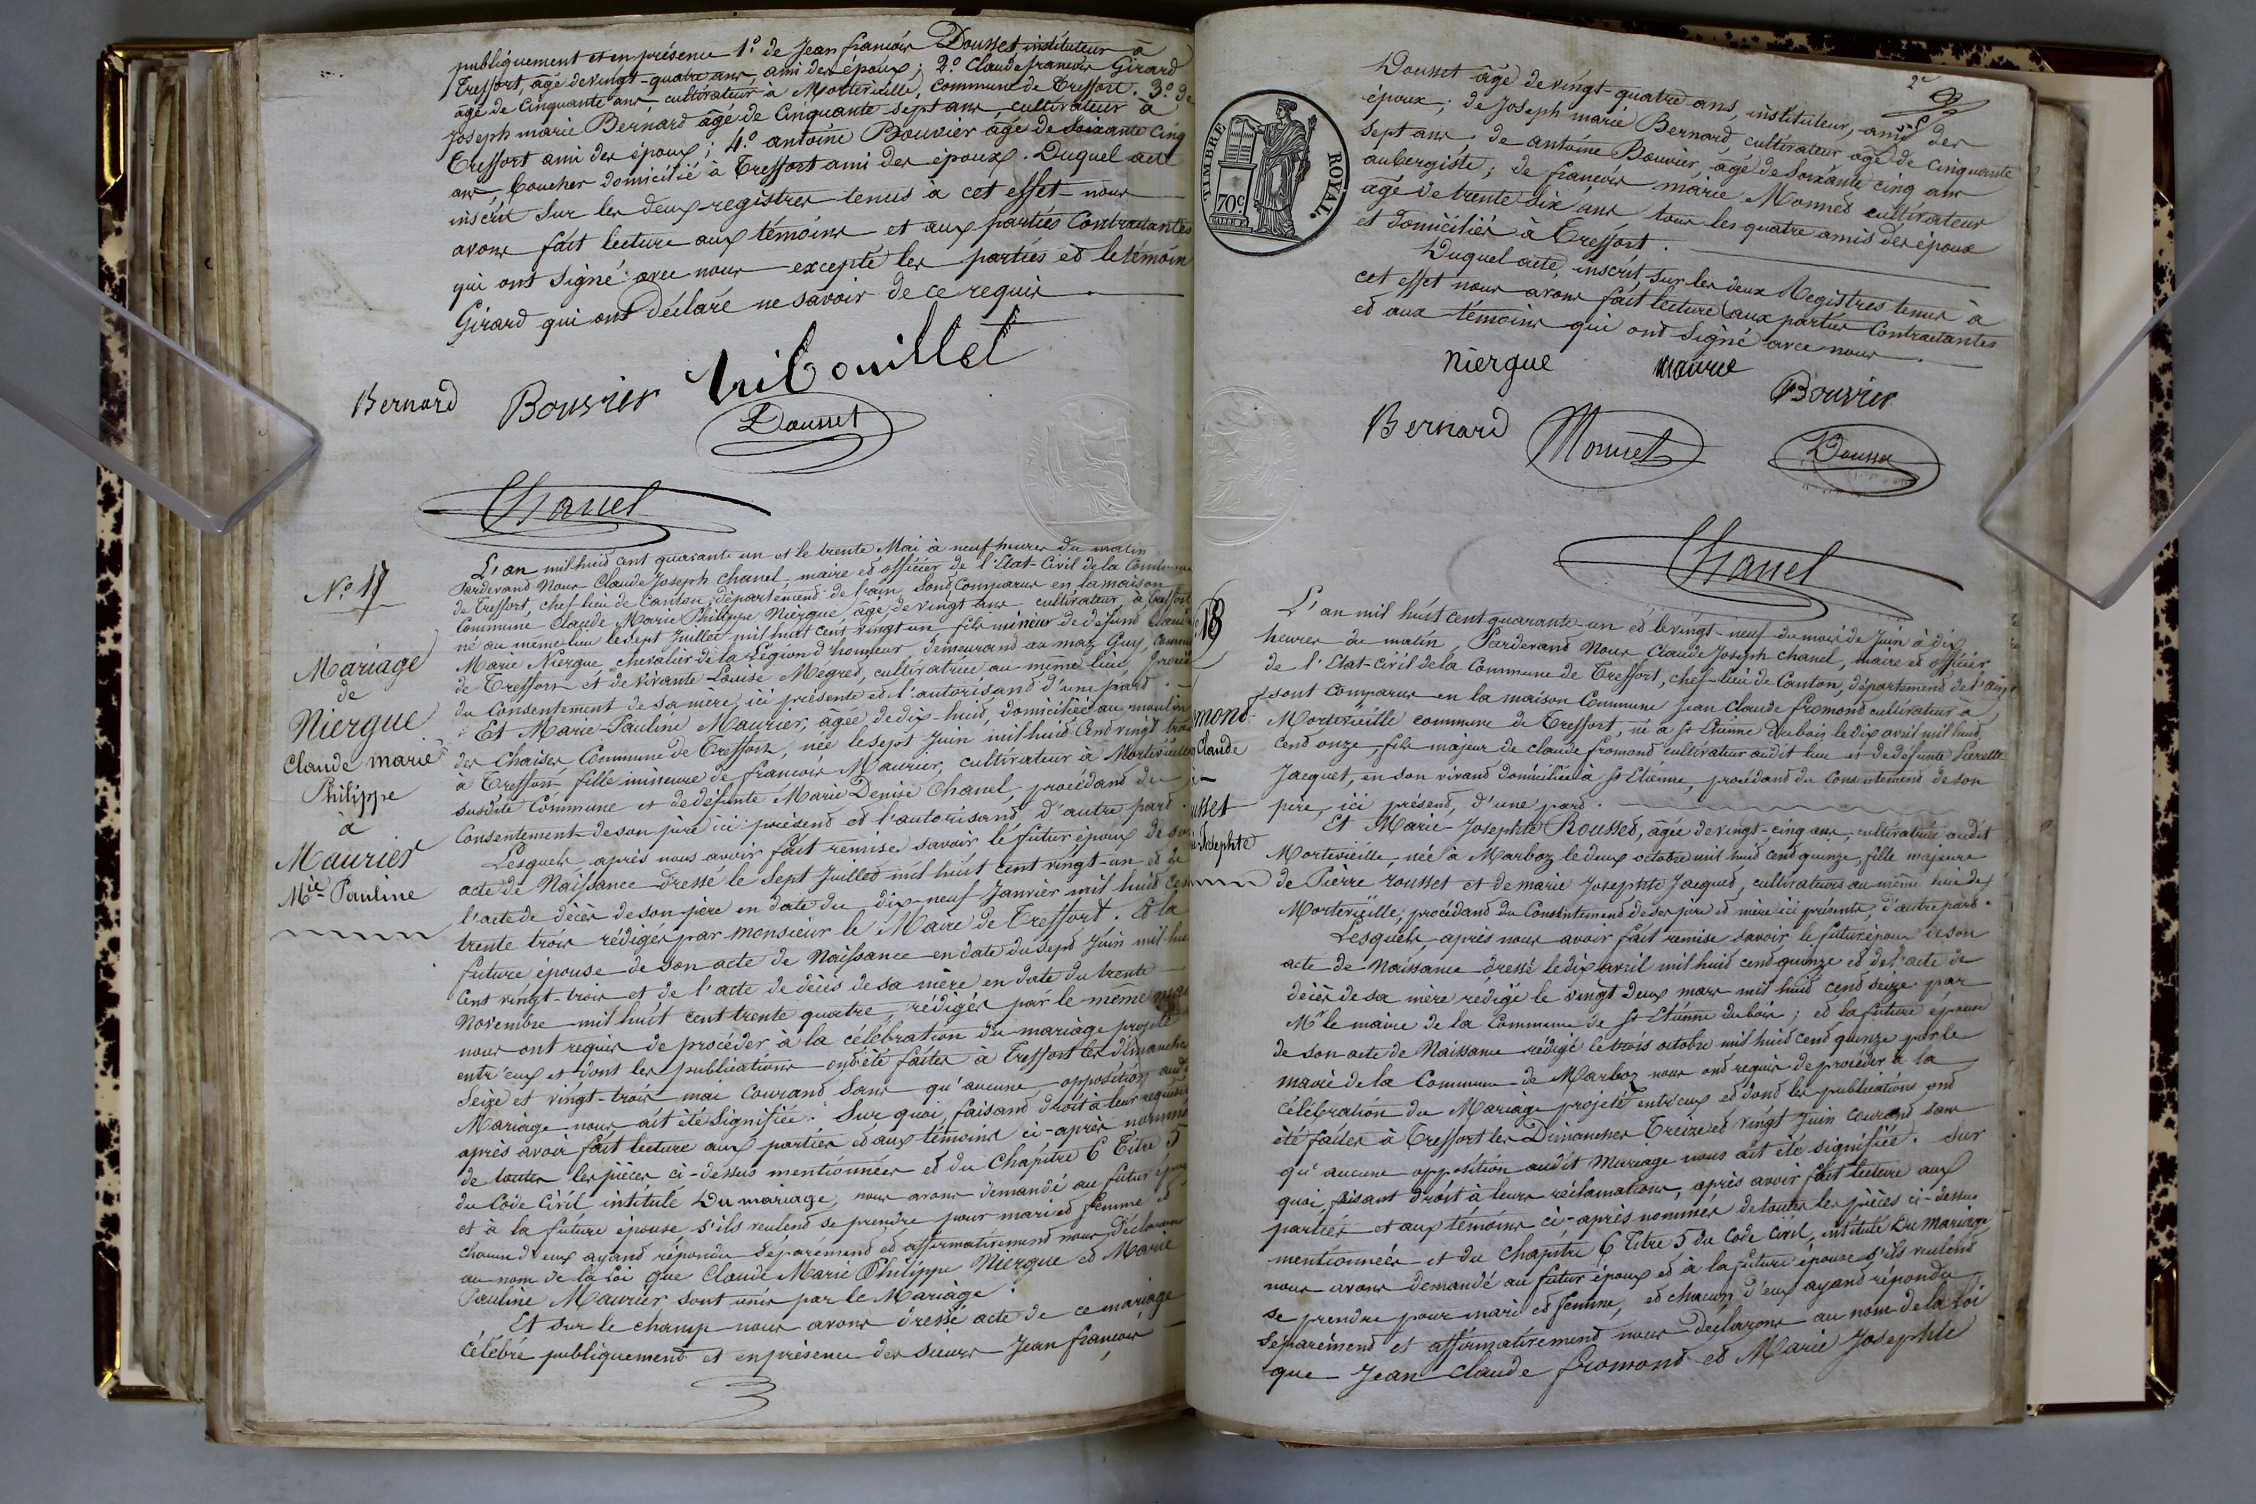 publiquement et en présence 1.° de Jean françois Dousset instituteur à
Treffort, âgé de vingt-quatre ans, ami des époux; 2.° Claude françois Girard
âgé de Cinquante ans, cultivateur à Mortevieille, Commune de Treffort. 3.° de
Joseph marie Bernard âgé de Cinquante sept ans cultivateur à
Treffort ami des époux; 4.° antoine Bouvier âgé de Soixante Cinq
ans, boucher domicilié à Treffort ami des époux. Duquel acte
inscrit sur les deux registres tenus à cet effet nous
avons fait lecture aux témoins et aux parties Contractantes
qui ont signé avec nous excepté les parties et le témoin
Girard qui ont déclaré ne savoir de ce requis.
Bernard Bouvier tribouillet
Dousset
Chanel
N.° 17
Mariage
de
Niergue
Claude marie
Philippe
à
Maurier
Mie Pauline
L'an mil huit cent quarante un et le trente Mai à neuf heures du matin
Pardevant Nous Claude Joseph Chanel, maire et officier de l'Etat-Civil de la Commune
de Treffort, chef-lieu de Canton, département de l'ain, sont Comparus en la maison
Commune Claude Marie Philippe Niergue, âgé de vingt ans, cultivateur à Treffort
né au même lieu le sept Juillet mil huit cent vingt un fils mineur de défunt
Marie Niergue, chevalier de la Légion d'honneur, demeurant au maz Guy,
de Treffort et de vivante Louise Mégret, cultivatrice au même lieu,
du Consentement de sa mère, ici présente et l'autorisant d'une part.
Et Marie-Pauline Maurier, âgée de dix-huit, domiciliée au moulin
des Chaises Commune de Treffort, née le sept Juin mil huit Cent vingt trois
à Treffort fille mineure de françois Maurier, cultivateur à Mortevieille
susdite Commune et de défunte Marie Denise Chanel, procédant du
Consentement de son père ici présent et l'autorisant d'autre part.
Lesquels, après nous avoir fait remise savoir le futur époux de son
acte de Naissance dressé le sept Juillet mil huit cent vingt-un et de
l'acte de décès de son père en date du dix-neuf Janvier mil huit cent
trente trois rédigés par monsieur le Maire de Treffort. Et la
future épouse de son acte de Naissance en date du sept Juin mil huit
Cent vingt-trois et de l'acte de décès de sa mère en date du trente
Novembre mil huit cent trente quatre, rédigés par le même
nous ont requis de procéder à la célébration du mariage projeté
entr'eux et dont les publications ont été faites à Treffort les dimanches
Seize et vingt-trois mai Courant sans qu'aucune opposition audit
Mariage nous ait été signifiée. Sur quoi, faisant droit à leur
après avoir fait lecture aux parties et aux témoins ci-après nommés
de toutes les pièces ci-dessus mentionnées et du Chapitre 6 Titre 5
du Code Civil intitulé Du mariage, nous avons demandé au futur époux
et à la future épouse s'ils veulent se prendre pour mari et femme et
chacun d'eux ayant répondu séparément et affirmativement nous déclarons
au nom de la Loi que Claude Marie Philippe Niergue et Marie
Pauline Maurier sont unis par le Mariage.
Et sur le champ nous avons dressé acte de ce mariage
célébré publiquement et en présence des sieurs Jean françois
TIMBRE ROYAL.
70c
2e
Dousset âgé de vingt-quatre ans, instituteur, ami des
époux; de Joseph marie Bernard, cultivateur âgé de Cinquante
sept ans de antoine Bouvier, âgé de Soixante cinq ans
aubergiste; de françois marie Monnet cultivateur
âgé de trente six ans tous les quatre amis des époux
et domiciliés à Treffort.
Duquel acte, inscrit sur les deux Registres tenus à
cet effet nous avons fait lecture aux parties Contractantes
et aux témoins qui ont signé avec nous.
Niergue maurie
Bouvier
Bernard Monnet Dousset
Chanel
18
mond
Claude
usset
Josephte
L'an mil huit cent quarante-un et le vingt-neuf du mois de Juin à dix
heures du matin, Pardevant Nous Claude Joseph Chanel, maire et officier
de l'Etat-Civil de la Commune de Treffort, chef-lieu de Canton, département de l'ain,
sont Comparus en la maison Commune Jean Claude fromont cultivateur à
Mortevieille commune de Treffort, né à St Etienne Dubois le dix avril mil huit
cent onze, fils majeur de claude fromont cultivateur audit lieu et de défunte Pierrette
Jacquet, en son vivant domiciliée à St Etienne, procédant du Consentement de son
père, ici présent, d'une part.
Et Marie-Josephte Rousset, âgée de vingt-cinq ans, cultivatrice audit
Mortevieille, née à Marboz le deux octobre mil huit cent quinze, fille majeure
de Pierre rousset et de marie Josephte Jacquet, cultivateurs au même lieu de
Mortevieille, procédant du Consentement de ses père et mère ici présents, d'autre part.
Lesquels, après nous avoir fait remise savoir le futur époux de son
acte de Naissance dressé le dix avril mil huit cent quinze et de l'acte de
décès de sa mère rédigé le vingt deux mars mil huit cent seize par
Mr le maire de la Commune de St Etienne dubois; et la future épouse
de son acte de Naissance rédigé le trois octobre mil huit cent quinze par le
maire de la Commune de Marboz nous ont requis de procéder à la
célébration du Mariage projeté entr'eux et dont les publications ont
été faites à Treffort les Dimanches Treize et vingt Juin Courant sans
qu'aucune opposition audit Mariage nous ait été signifiée. Sur
quoi, faisant droit à leurs réclamations, après avoir fait lecture aux
parties et aux témoins ci-après nommés de toutes les pièces ci-dessus
mentionnées et du Chapitre 6 Titre 5 du Code Civil, intitulé Du Mariage,
nous avons demandé au futur époux et à la future épouse s'ils veulent
se prendre pour mari et femme, et chacun d'eux ayant répondu
séparément et affirmativement nous déclarons au nom de la Loi
que Jean Claude fromont et Marie Josephte